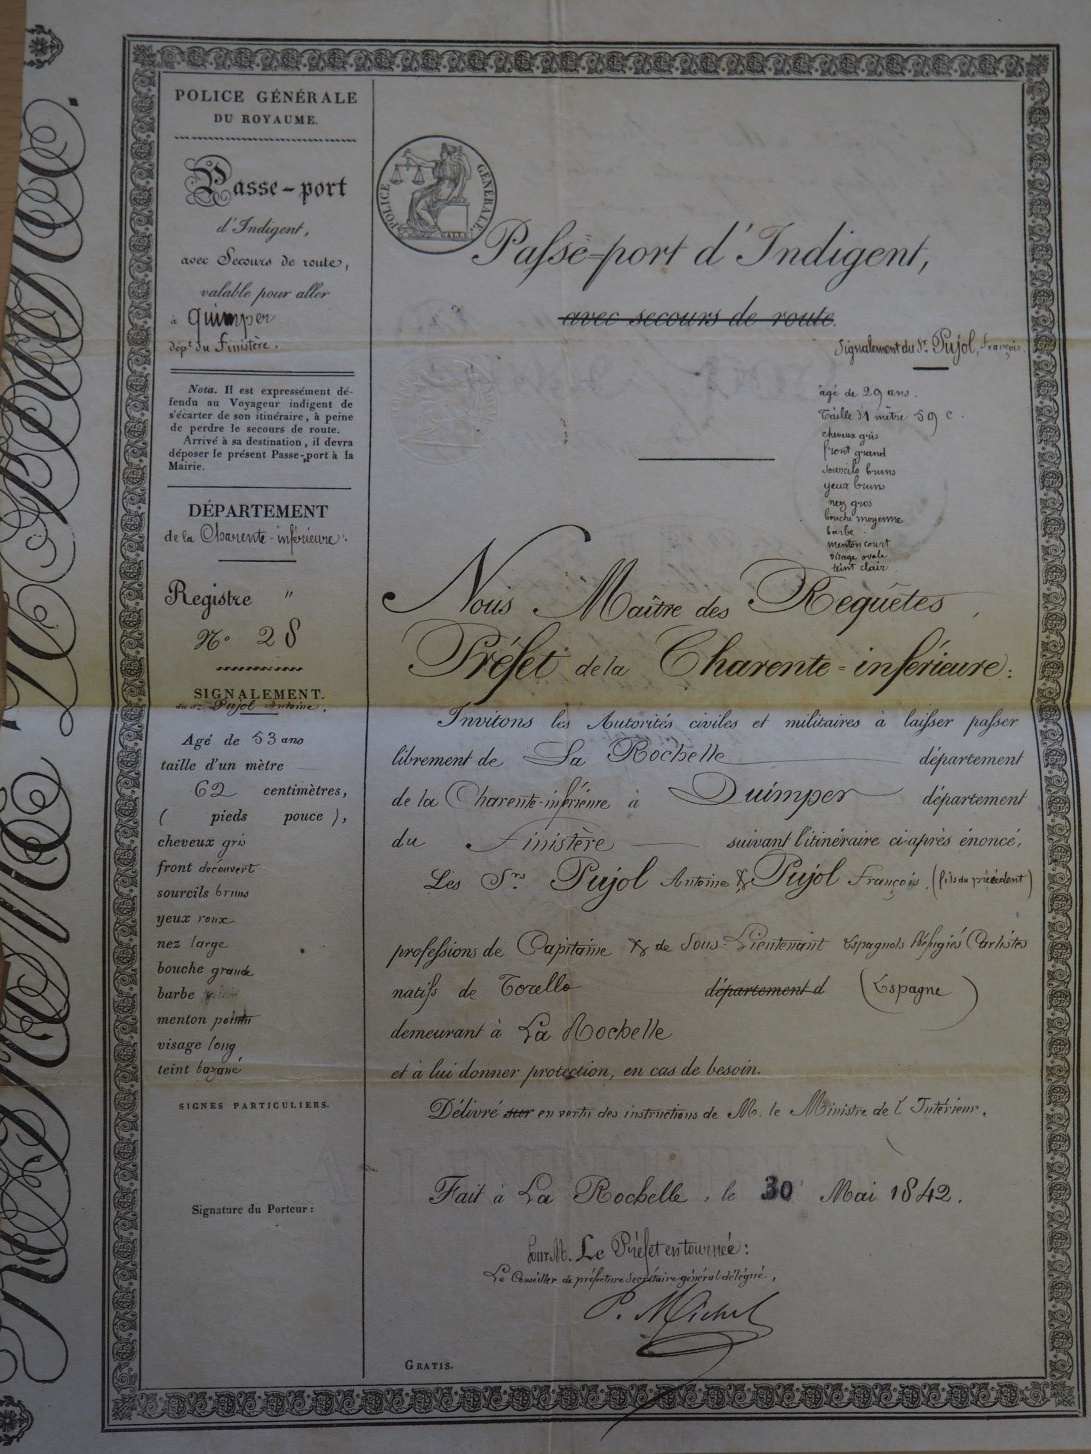 POLICE GÉNÉRALE
DU ROYAUME.
Passe-port
d'Indigent,
avec Secours de route,
valable pour aller
à Quimper
dépt du Finistère.
Nota. Il est expressément dé-
fendu au Voyageur indigent de
s'écarter de son itinéraire, à peine
de perdre le secours de route.
Arrivé à sa destination, il devra
déposer le présent Passe-port à la
Mairie.
DÉPARTEMENT
de la Charente-inférieure.
Registre "
No 28
SIGNALEMENT.
du Sr Pujol Antoine.
Agé de 53 ans
taille d'un mètre
62 centimètres,
( pieds pouce ),
cheveux gris
front découvert
sourcils bruns
yeux roux
nez large
bouche grande
barbe
menton pointu
visage long,
teint bazané
SIGNES PARTICULIERS.
Signature du Porteur :
POLICE GÉNÉRALE.
Passe-port d'Indigent,
avec secours de route.
Signalement du Sr Pujol, François.
âgé de 29 ans.
Taille d'1 mètre 59 c.
cheveux gris
front grand
sourcils bruns
yeux bruns
nez gros
bouche moyenne
barbe
menton court
visage ovale
teint clair
Nous Maître des Requêtes,
Préfet de la Charente-inférieure:
Invitons les Autorités civiles et militaires à laisser passer
librement de La Rochelle département
de la Charente-inférieure à Quimper département
du Finistère suivant l'itinéraire ci-après énoncé,
Les Srs Pujol Antoine & Pujol François, (fils du précédent)
professions de Capitaine & de Sous-Lieutenant Espagnols Réfugiés Carlistes
natifs de Torello département d (Espagne)
demeurant à La Rochelle
et à lui donner protection, en cas de besoin.
Délivré sur en vertu des instructions de M. le Ministre de l'Intérieur.
Fait à La Rochelle, le 30 Mai 1842.
Pour M. Le Préfet en tournée:
Le Conseiller de préfecture Secrétaire général délégué,
P. Michel
GRATIS.